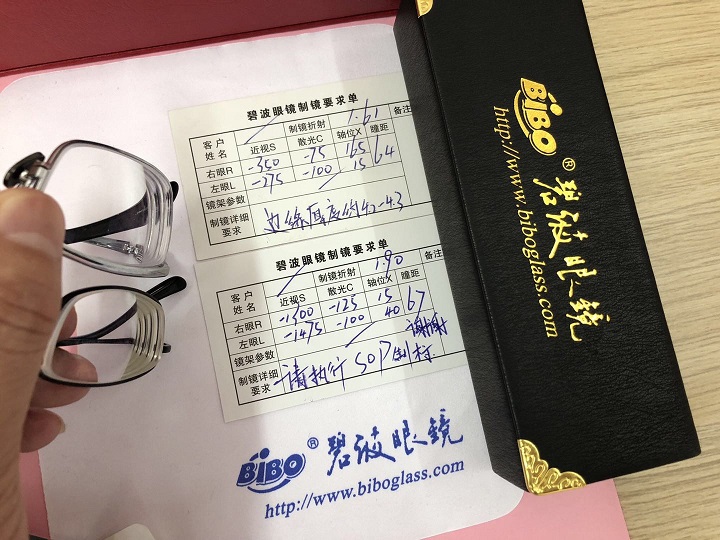 碧波眼镜制镜要求单
客户姓名 制镜折射 1.61 备注
近视S 散光C 轴位X 瞳距
右眼R -350 -75 165 64
左眼L -275 -100 15
镜架参数
制镜详细要求 边缘厚度约4.2-4.3
碧波眼镜制镜要求单
客户姓名 制镜折射 1.90 备注
近视S 散光C 轴位X 瞳距
右眼R -1300 -125 15 67
左眼L -1475 -100 40
镜架参数 谢谢
制镜详细要求 请执行SOP制标
BiBO® 碧波眼镜
http://www.biboglass.com
BiBO® 碧波眼镜
http://www.biboglass.com